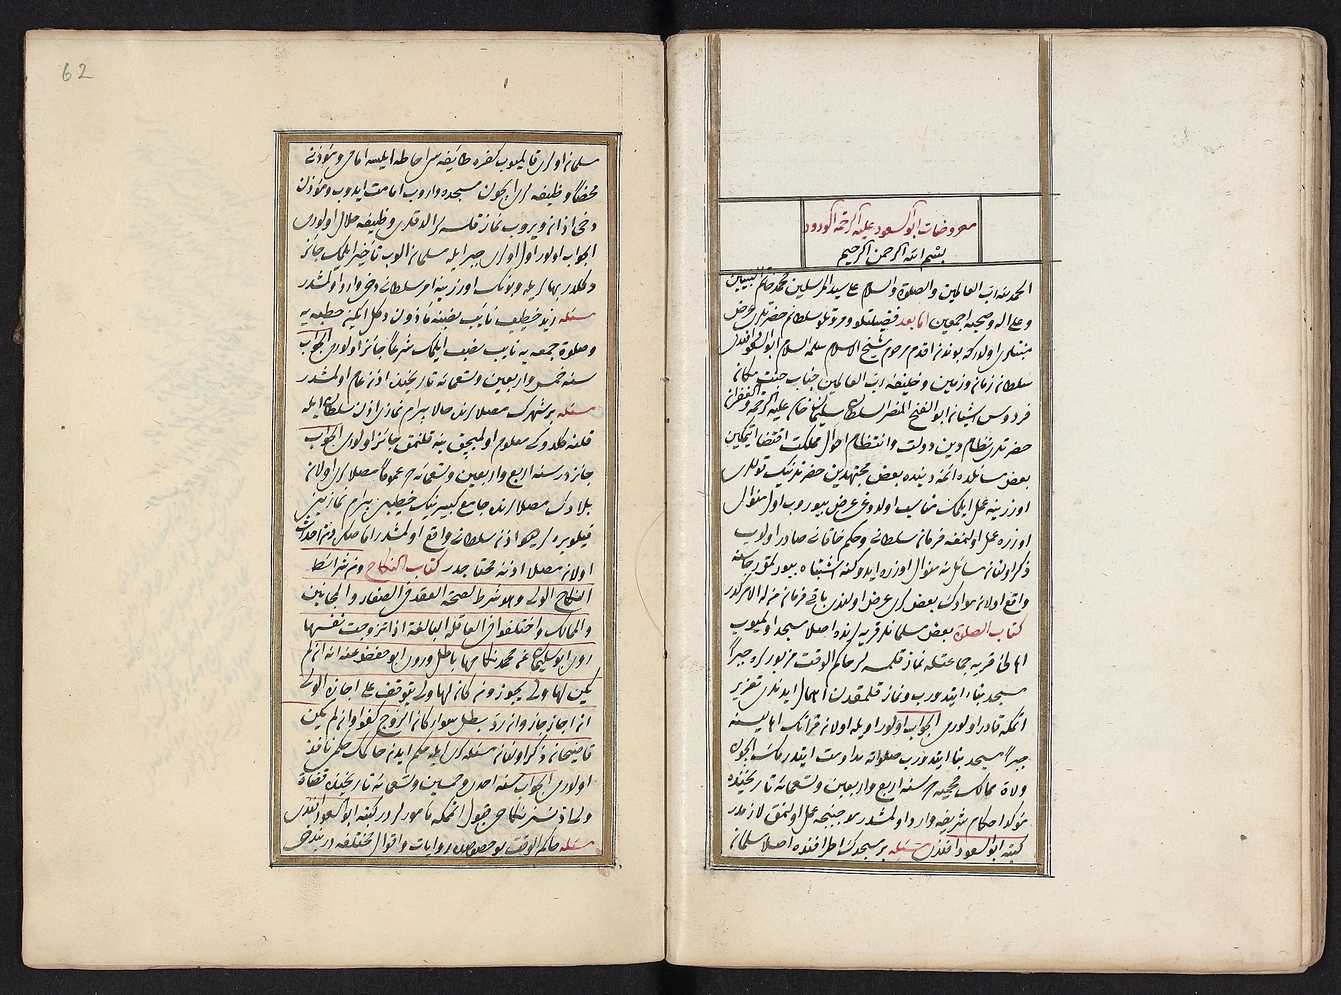 معروضات ابو السعود عليه الرحمة الودود
بسم الله الرحمن الرحيم
الحمد لله رب العالمين والصلوة والسلام على سيد المرسلين محمد خاتم النبيين
وعلى اله وصحبه اجمعين اما بعد فضيلتلو ومروتلو سلطانم حضرتلرينه عرض
اولنور كه بوندن اقدم مرحوم شيخ الاسلام ابو السعود افندى
سلطان زمان وزمين وخليفه رب العالمين جناب جنت مكان
فردوس اشيان ابو الفتح والنصر السلطان سليمان خان عليه الرحمة والغفران
حضرتلرى نظام دين ودولت وانتظام احوال مملكت اقتضا ايتمكين
بعض مسائلده ائمه دينده بعض مجتهدين حضرتلرينك قوللرى
اوزرينه عمل ايلمك مناسب اولدوغى عرض بيوروب اول منوال
اوزره عمل اولنمغه فرمان سلطانى وحكم خاقانى صادر اولوب
ذكر اولنان مسائل نه منوال اوزره ايدوكنه اشتباه بيورلدوقده
واقع اولان موادك بعضلرى عرض اولندى باقى فرمان من له الامركدر
كتاب الصلوة بعض مسلمانلر قريه لرنده اصلا مسجد اولميوب
اهالئ قريه جماعتله نماز قلمسه لر حاكم الوقت مزبورلره جبرا
مسجد بنا ايتدروب ونماز قلمقده اهمال ايدنلرى تعزير
ايتمكه قادر اولورمى الجواب اولور اويله اولان قرانك اهاليسنه
جبرا مسجد بنا ايتدروب صلواته مداومت ايتدرمك ايچون
ولاة ممالك محميه يه سنه اربع واربعين وتسعمائه تاريخنده
مؤكد احكام شريفه وارد اولمشدر موجبنجه عمل اولنمق لازمدر
كتبه ابو السعود افندى مسئله بر مسجدك اطرافنده اصلا مسلمان
مسلمان اولر قالميوب كفره طائفه سى احاطه ايلسه امام ومؤذن
محضا وظيفه لرى ايچون مسجده واروب امامت ايدوب ومؤذن
دخى اذان ويروب نماز قلسه لر الدقلرى وظيفه حلال اولورمى
الجواب اولور اول اولرى جبرا مسلمان الوب تأخير ايلمك جائز
دكلدر بهالريله ويرلمك اوزرينه امر سلطانى دخى وارد اولمشدر
مسئله زيد خطيب نائب نصبنه مأذون دكل ايكن خطبه يه
وصلوة جمعه يه نائب نصب ايلمك شرعا جائز اولورمى الجواب
سنه خمس واربعين وتسعمائه تاريخنده اذن عام اولمشدر
مسئله بر شهرك مصلاسنده حالا بيرام نمازى اذن سلطان ايله
قلنه كلدوكى معلوم اولميجق ينه قلنمق جائز اولورمى الجواب
جائزدر سنه اربع واربعين وتسعمائه ده عموما مصلاسى اولان
بلادك مصلالرنده جامع كبيرينك خطيبى بيرام نمازين
قيلويره ديو اذن سلطانى واقع اولمشدر اما صكره دن احداث
اولان مصلا اذنه محتاجدر كتاب النكاح ومن شرائط
النكاح الولى وهو شرط لصحة العقد فى الصغار والمجانين
والمماليك واختلفوا فى العاقلة البالغة اذا تزوجت نفسها
روى ابو سليمان عن محمد نكاحها باطل وروى ابو حفص عنه انه ان لم
يكن لها ولى يجوز وان كان لها ولى يتوقف على اجازة الولى
ان اجاز جاز وان رد يبطل سواء كان الزوج كفوا او لم يكن
قاضيخان ذكر اولنان مسئله لرى ايله حكم ايدن حاكمك حكمى نافذ
اولورمى الجواب سنه احدى وخمسين وتسعمائه تاريخنده قضاة
ولى اذنسز نكاحى قبول ايتمكه مامورلردر كتبه ابو السعود افندى
مسئله حاكم الوقت بو خصوصده روايات واقوال مختلفه در